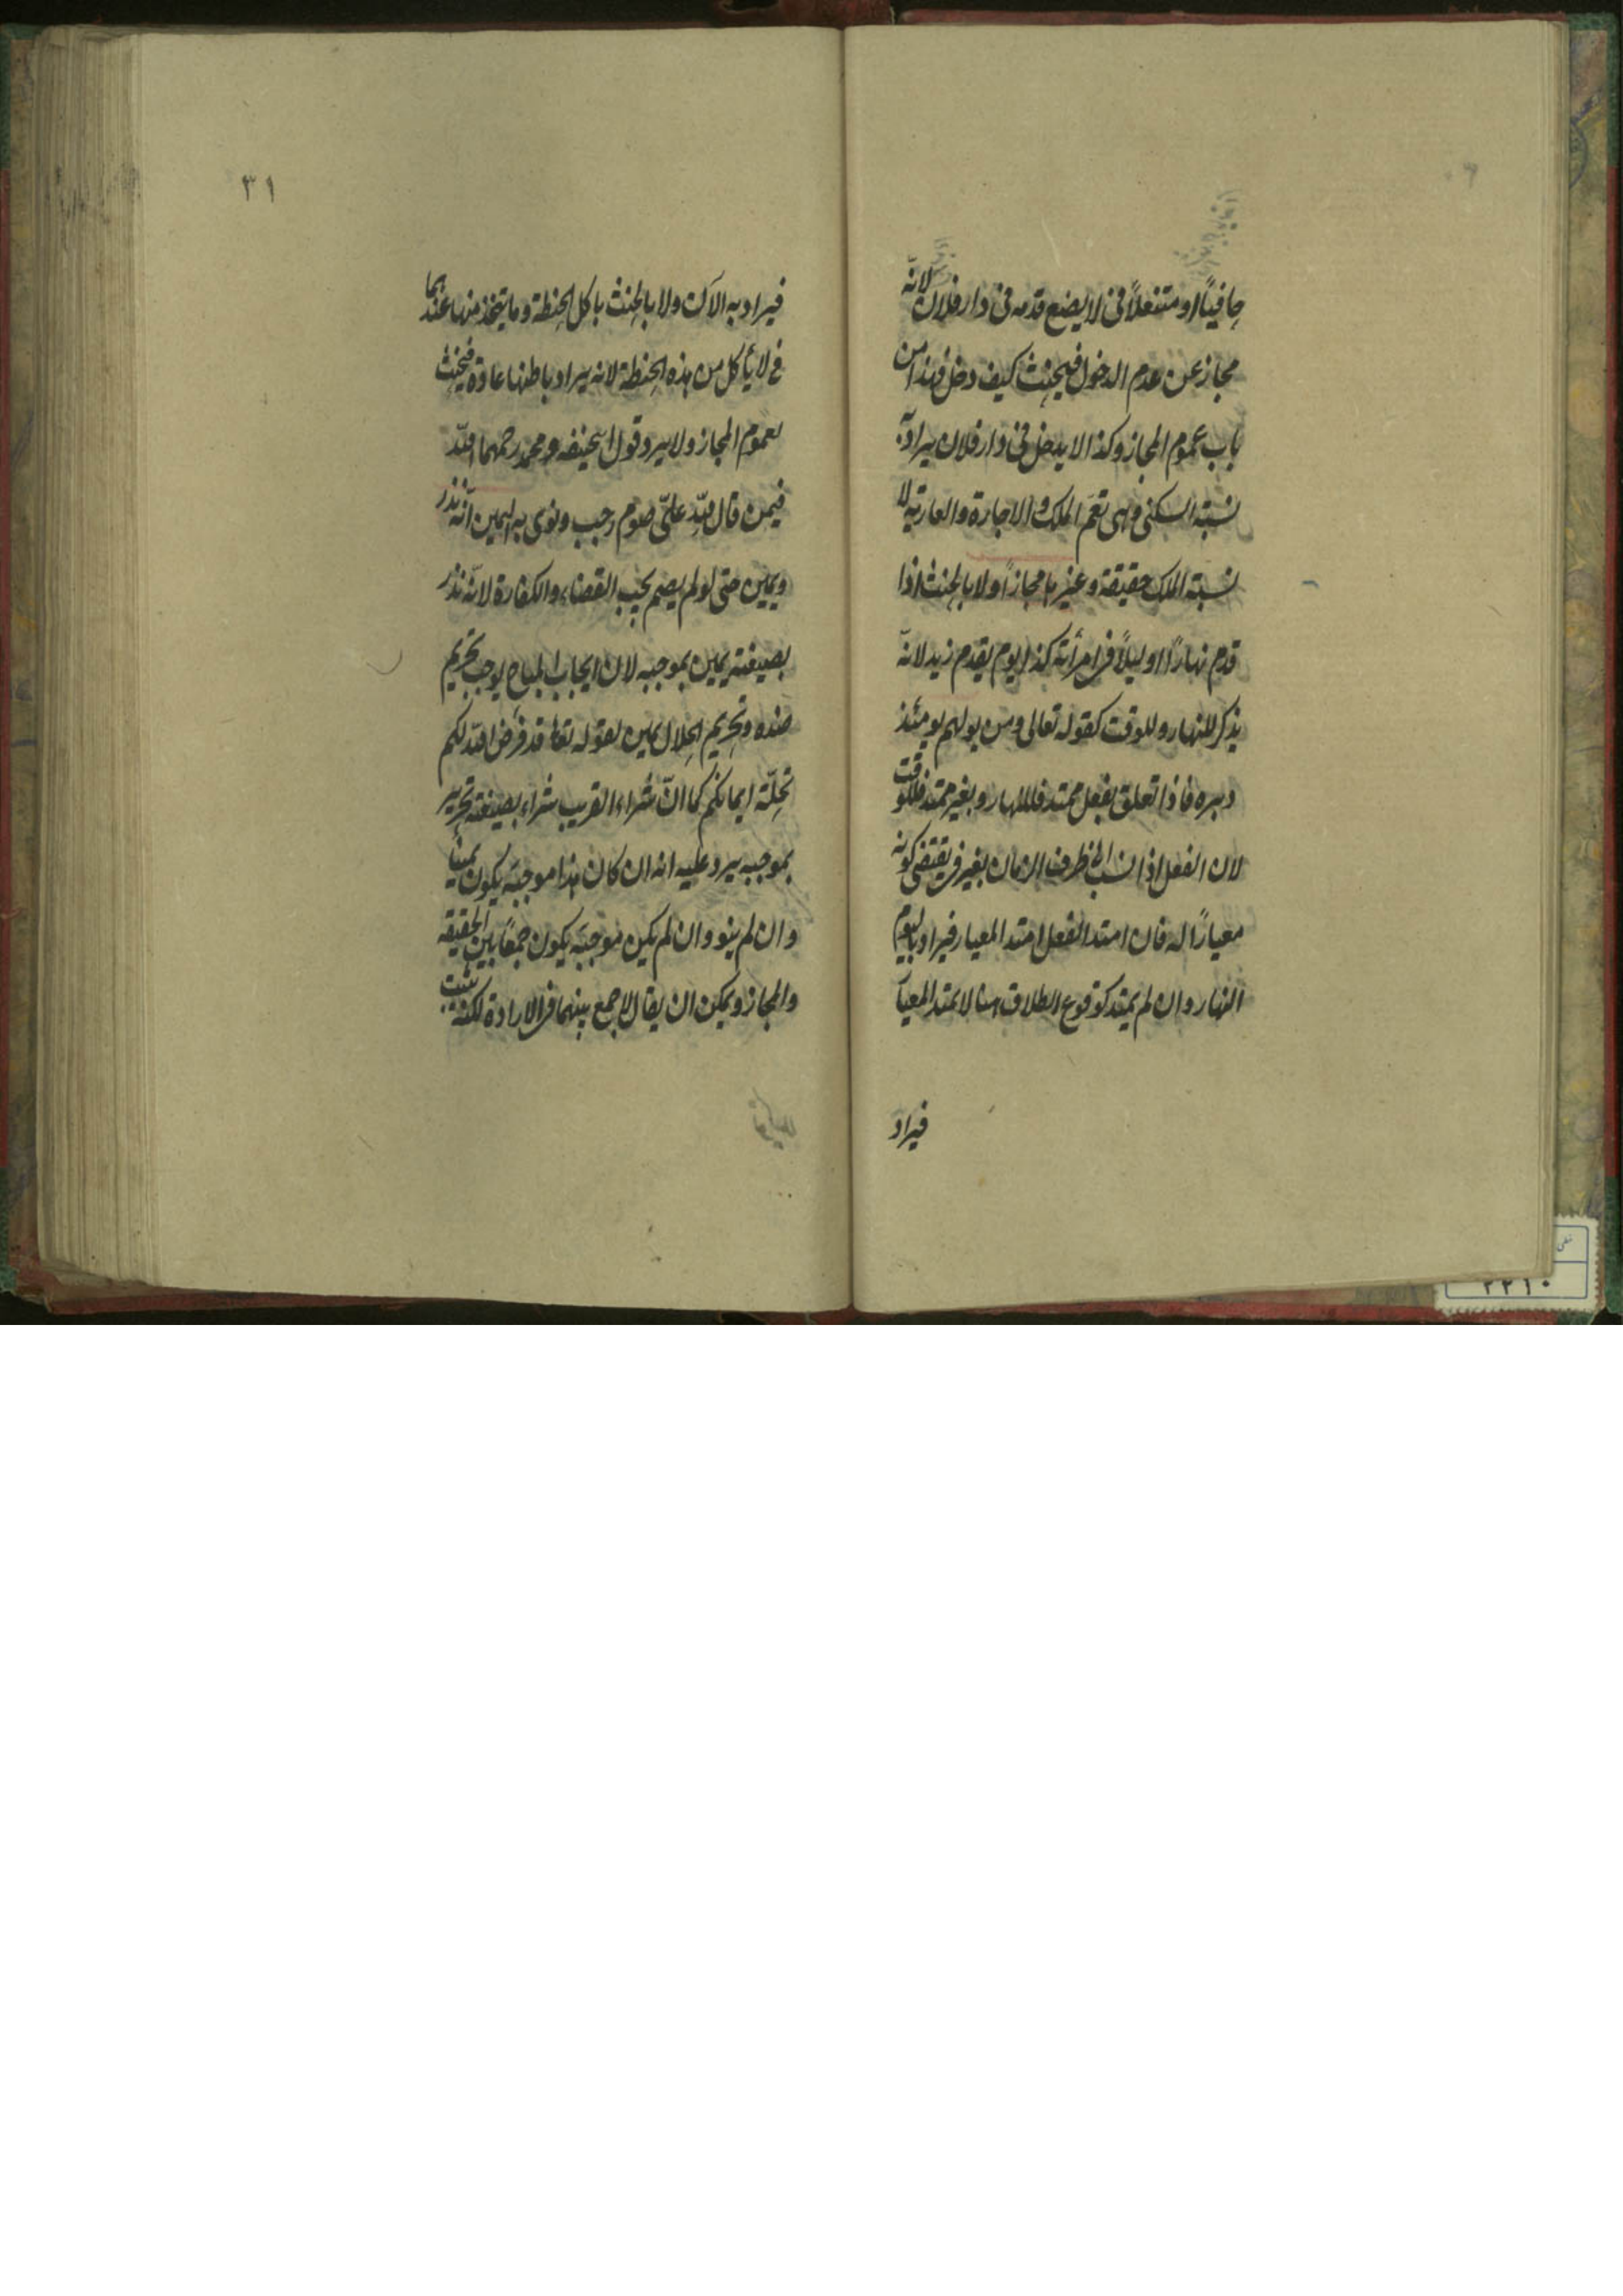 حافيًا او متنعلًا فى لا يضع قدمه فى دار فلان لانّه
مجاز عن عدم الدخول فيحنث كيف دخل فهذا من
باب عموم المجاز وكذا لا يدخل فى دار فلان يراد به
نسبة السكنى وهى تعمّ الملك والاجارة والعارية لا
نسبة الملك حقيقة وغيرها مجازًا ولا بالحنث اذا
قدم نهارًا او ليلًا فى امرأته كذا يوم يقدم زيد لانّه
يذكر للنهار وللوقت كقوله تعالى ومن يولهم يومئذ
دبره فاذا تعلق بفعل ممتد فللنهار وبغير ممتد فللوقت
لان الفعل اذا نسب الى ظرف الزمان بغير فى يقتضى كونه
معيارًا له فان امتد الفعل امتد المعيار فيراد باليوم
النهار وان لم يمتد كوقوع الطلاق هنا لا يمتد المعيار
فيراد
٣١
فيراد به الآن ولا بالحنث باكل الحنطة وما يتخذ منها عندهما
فى لا يأكل من هذه الحنطة لانه يراد باطنها عادة فيحنث
لعموم المجاز ولا يرد قول ابيحنيفه ومحمد رحمهما اللّه
فيمن قال للّه علىّ صوم رجب ونوى به اليمين انّه نذر
ويمين حتى لو لم يصم يجب القضاء والكفارة لانّه نذر
بصيغته يمين بموجبه لان ايجاب المباح يوجب تحريم
ضده وتحريم الحلال يمين لقوله تعا قد فرض اللّه لكم
تحلّة ايمانكم كما انّ شراء القريب شراء بصيغته تحرير
بموجبه يرد عليه انه ان كان هذا موجبَه يكون يمينا
وان لم ينو وان لم يكن موجبَه يكون جمعًا بين الحقيقه
والمجاز ويمكن ان يقال لا جمع بينهما فى الارادة لكنّه يثبت
٢٢١٠